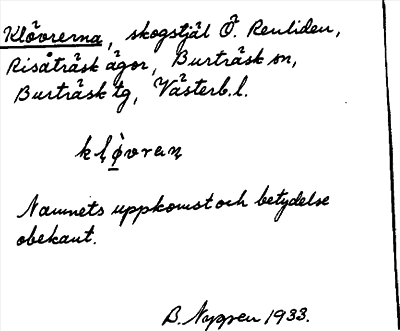 Klövrerna, skogstjäl Ö. Renliden,
Risåträsk ägor, Burträsk sn,
Burträsk tg, Västerb.l.
klø̀vraṇ
Namnets uppkomst och betydelse
obekant.
B. Nygren 1933.